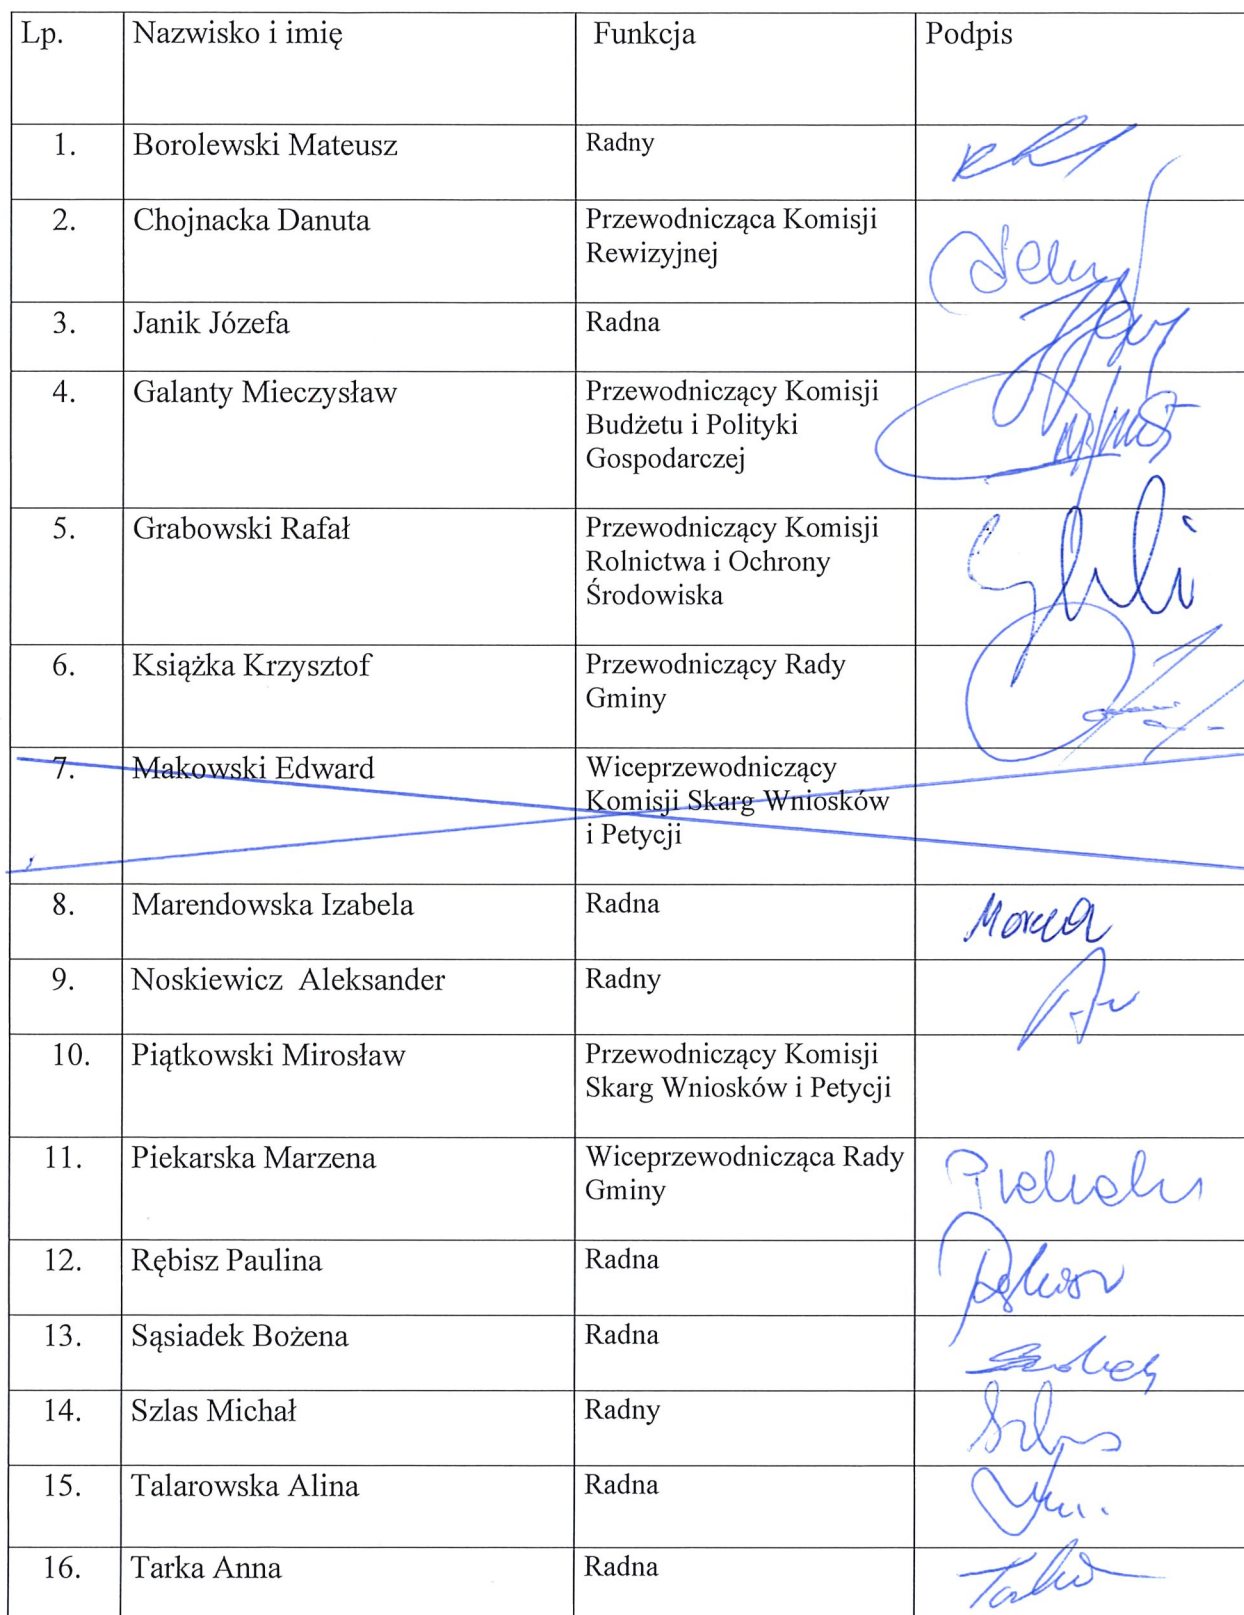 Lp. Nazwisko i imię Funkcja Podpis
1. Borolewski Mateusz Radny
2. Chojnacka Danuta Przewodnicząca Komisji
Rewizyjnej
3. Janik Józefa Radna
4. Galanty Mieczysław Przewodniczący Komisji
Budżetu i Polityki
Gospodarczej
5. Grabowski Rafał Przewodniczący Komisji
Rolnictwa i Ochrony
Środowiska
6. Książka Krzysztof Przewodniczący Rady
Gminy
7. Makowski Edward Wiceprzewodniczący
Komisji Skarg Wniosków
i Petycji
8. Marendowska Izabela Radna
9. Noskiewicz Aleksander Radny
10. Piątkowski Mirosław Przewodniczący Komisji
Skarg Wniosków i Petycji
11. Piekarska Marzena Wiceprzewodnicząca Rady
Gminy
12. Rębisz Paulina Radna
13. Sąsiadek Bożena Radna
14. Szlas Michał Radny
15. Talarowska Alina Radna
16. Tarka Anna Radna